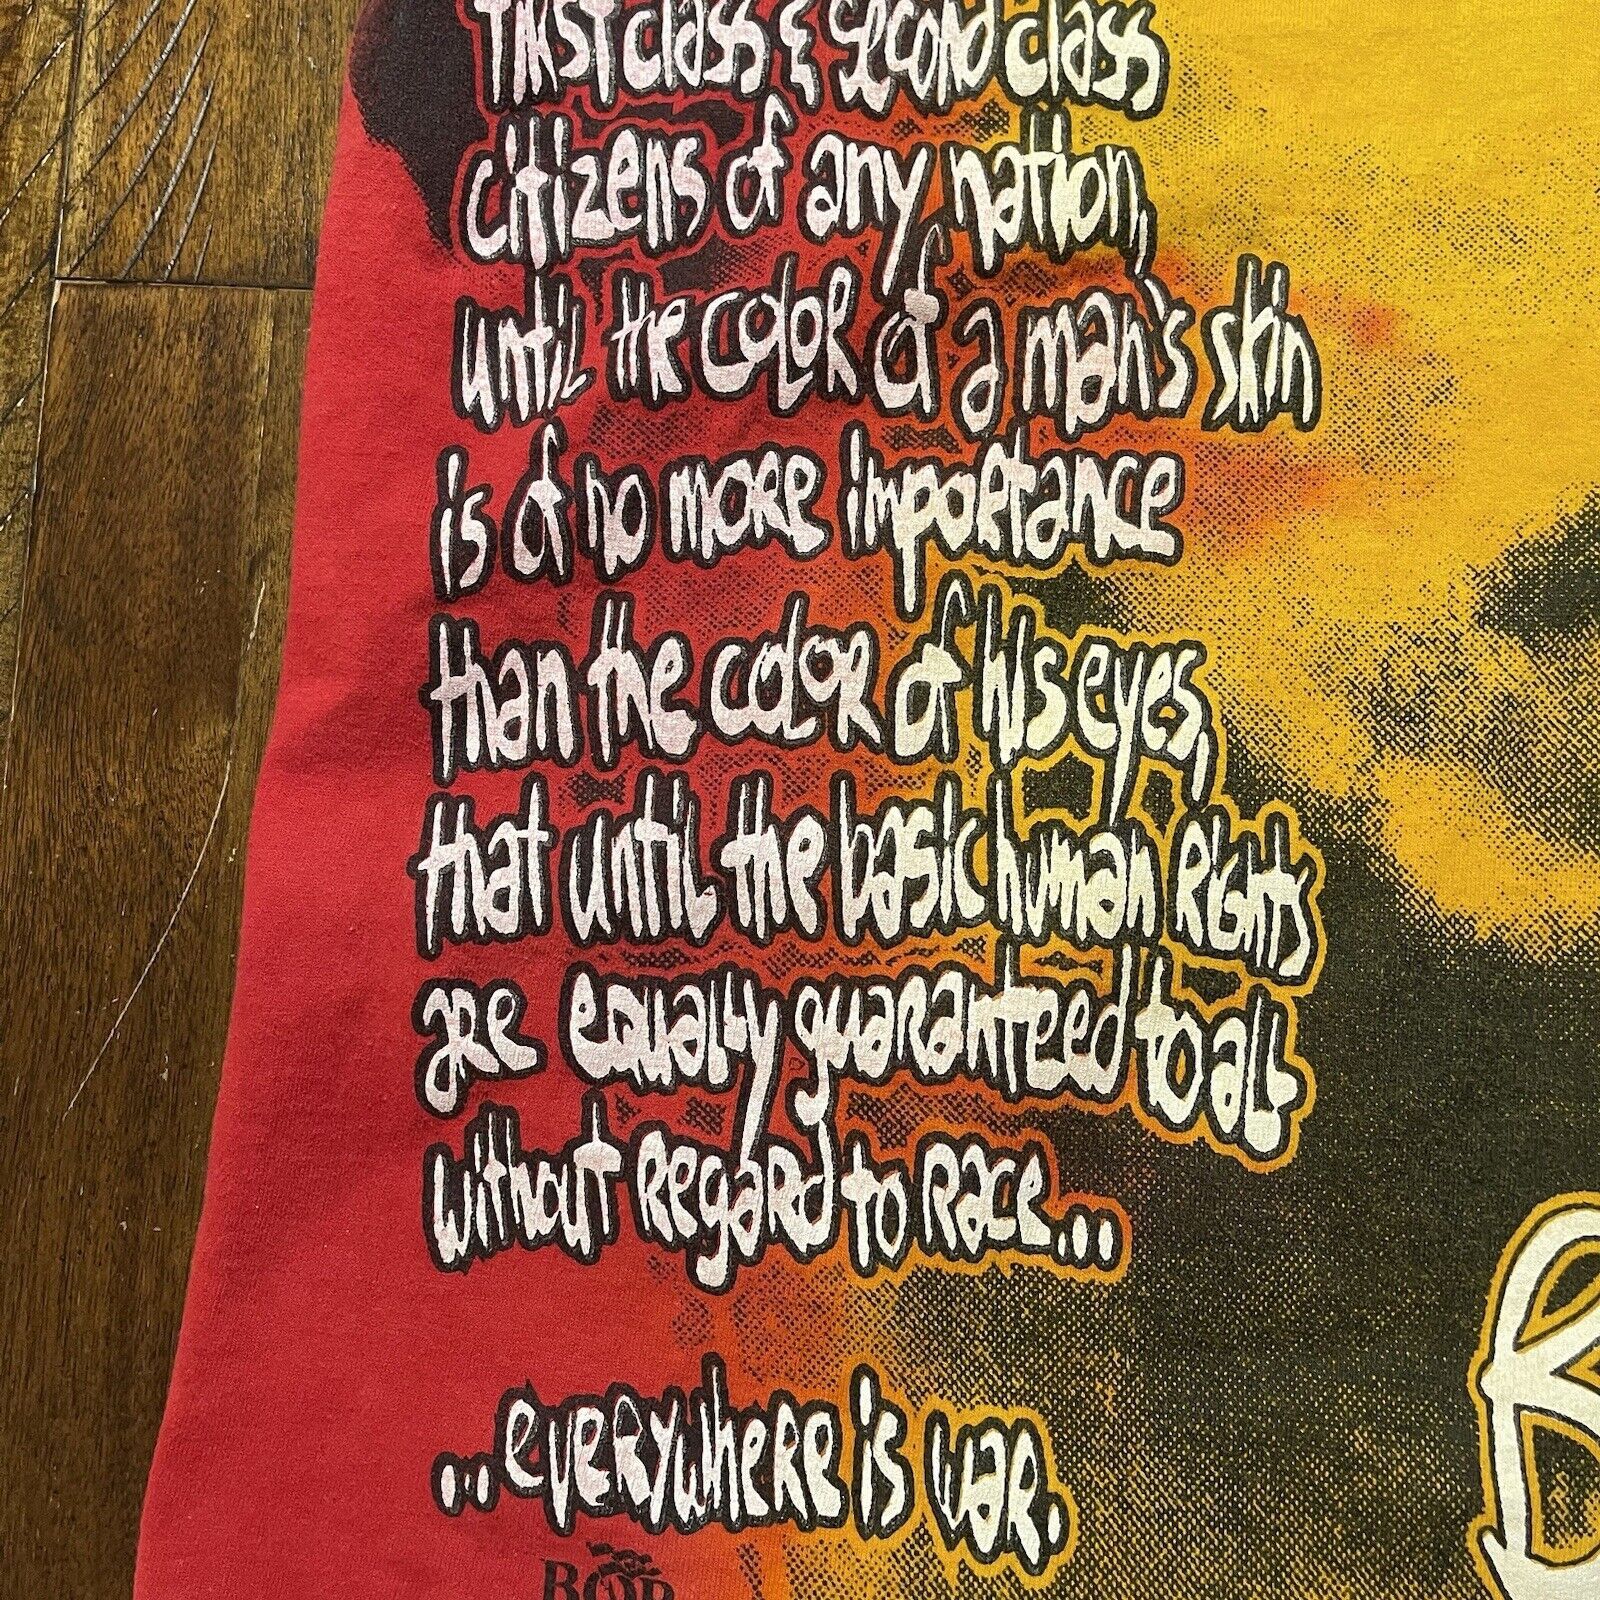 first class & second class
citizens of any nation,
until the color of a man's skin
is of no more importance
than the color of his eyes,
that until the basic human rights
are equally guaranteed to all
without regard to race...
...everywhere is war.
BOB
B